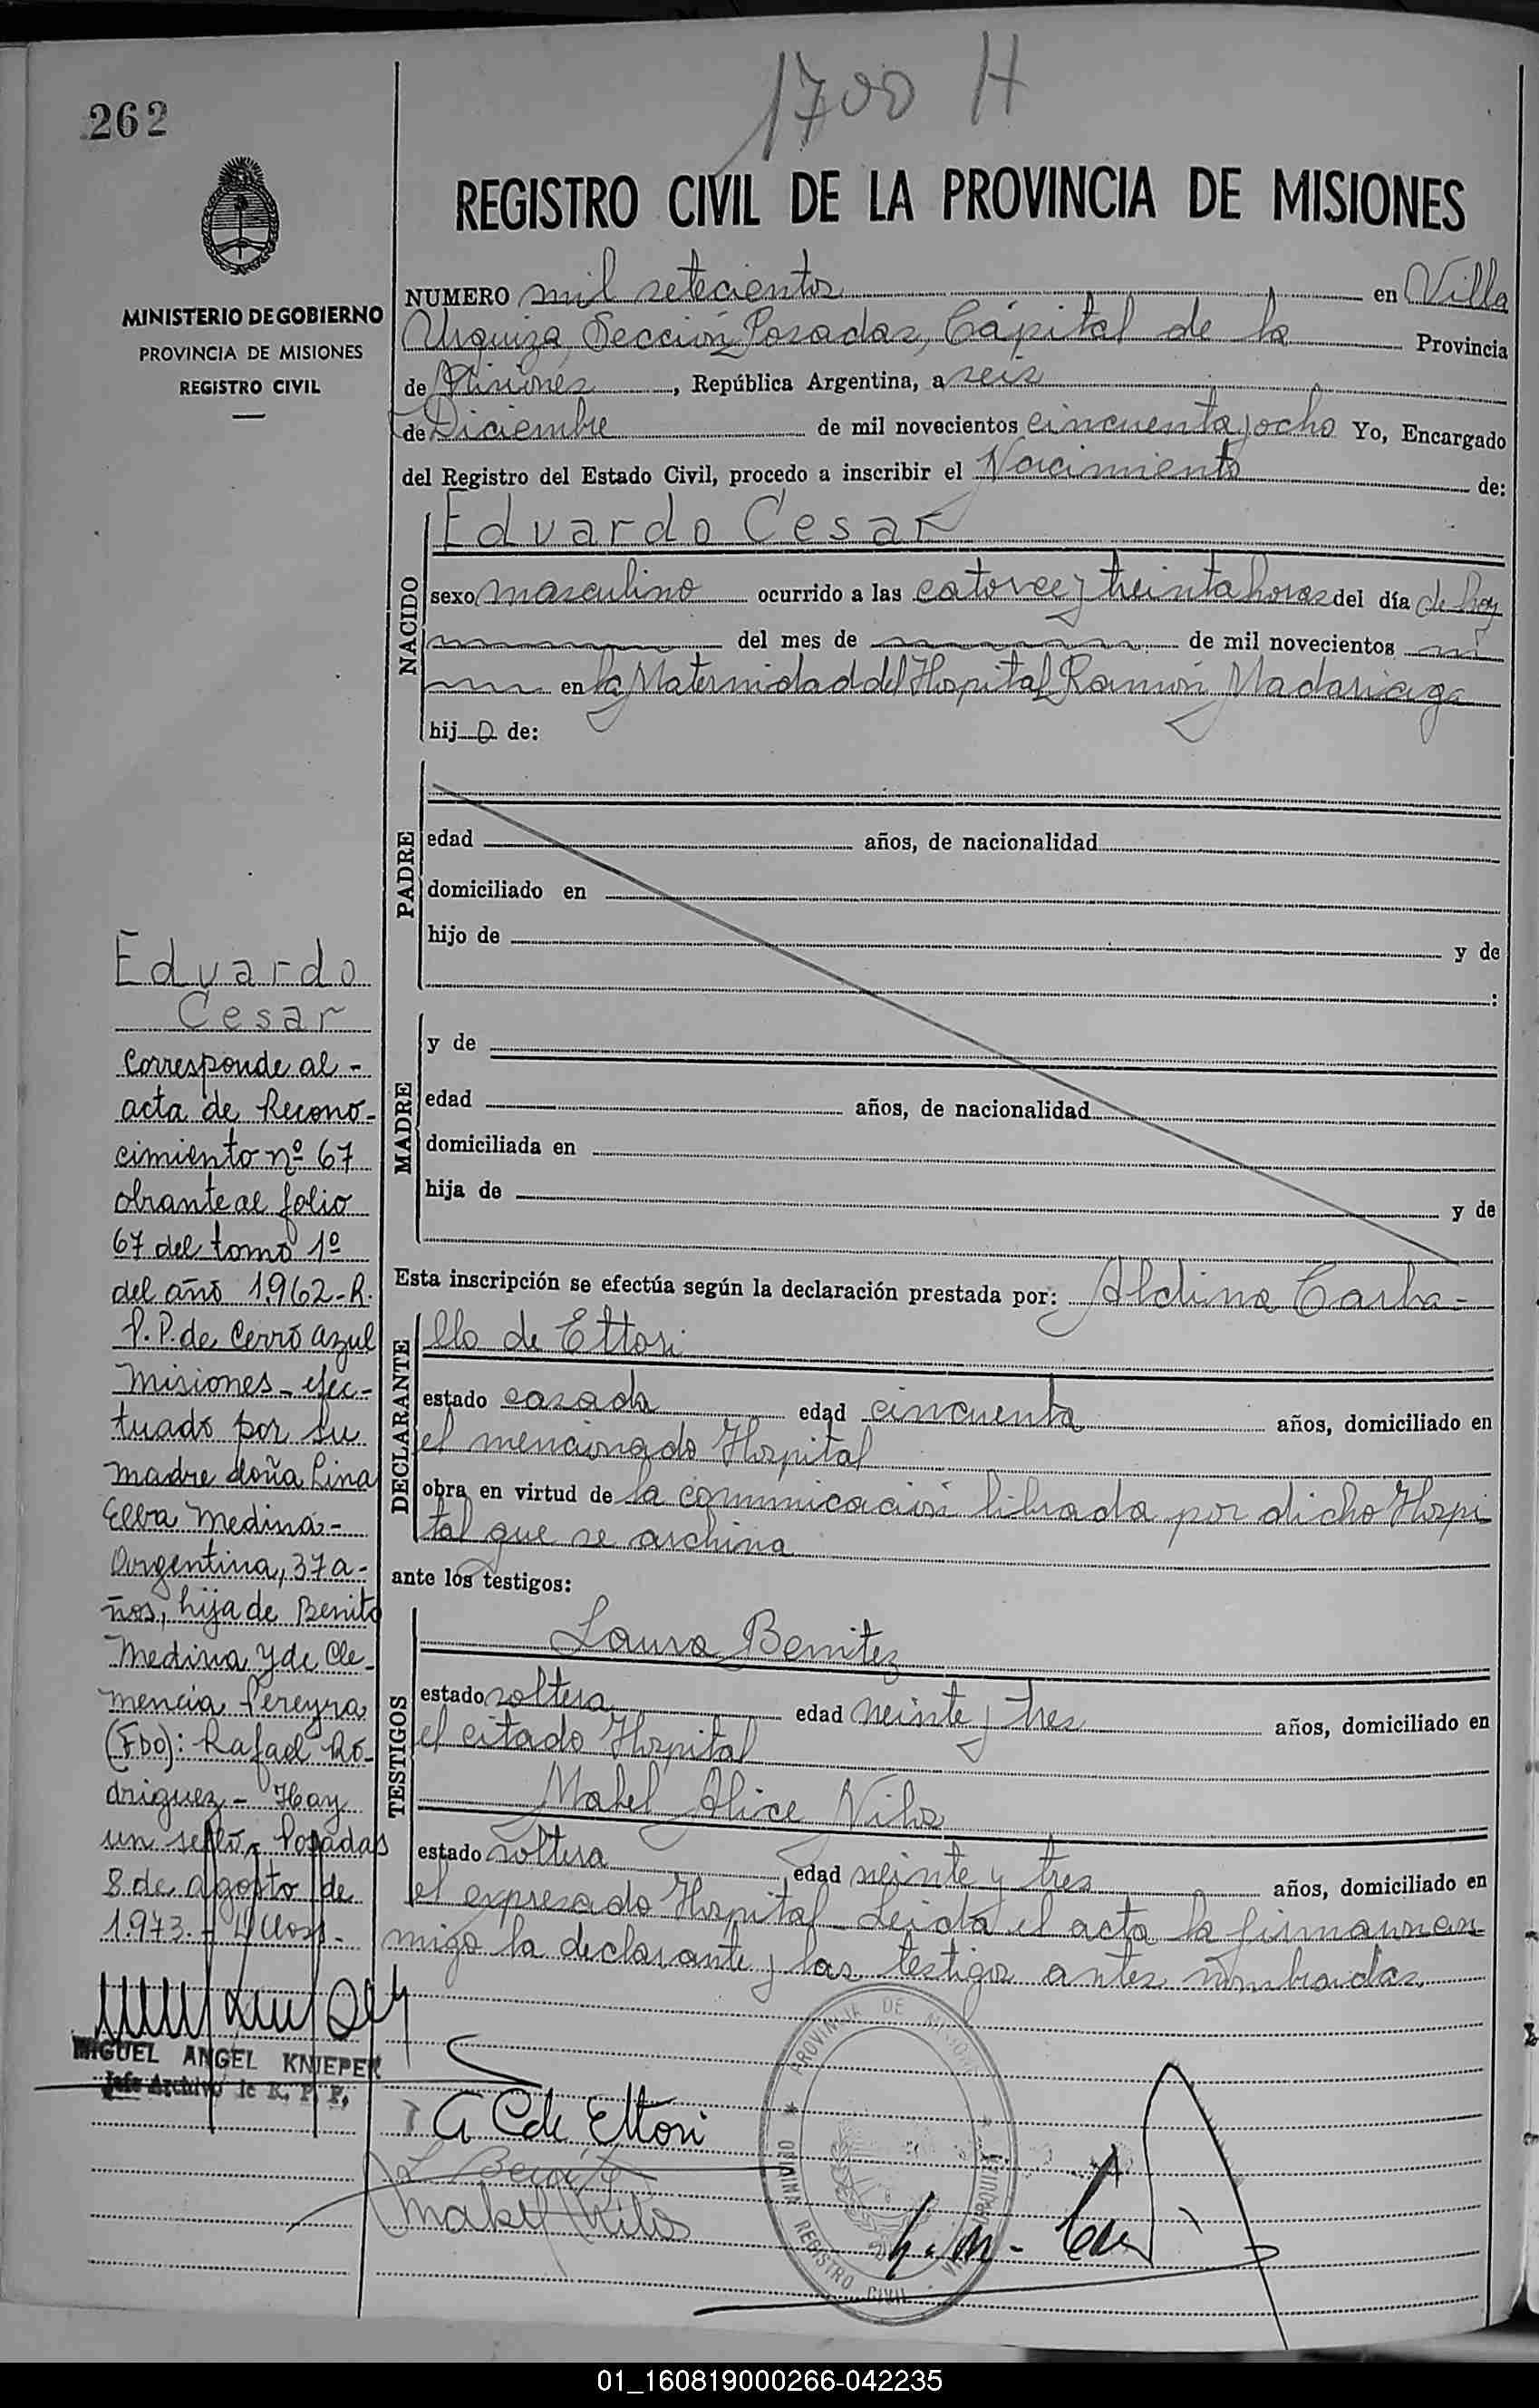 1700 H
262
MINISTERIO DE GOBIERNO
PROVINCIA DE MISIONES
REGISTRO CIVIL
REGISTRO CIVIL DE LA PROVINCIA DE MISIONES
NUMERO mil setecientos en Villa
Urquiza, Sección Posadas, Cápital de la Provincia
de Misiones, República Argentina, a seis
de Diciembre de mil novecientos cincuenta y ocho Yo, Encargado
del Registro del Estado Civil, procedo a inscribir el Nacimiento de:
NACIDO
Eduardo Cesar
sexo masculino ocurrido a las catorce y treinta horas del día de hoy
del mes de de mil novecientos
en la Maternidad del Hospital Ramón Madariaga
hijo de:
PADRE
edad años, de nacionalidad
domiciliado en
hijo de y de
:
MADRE
y de
edad años, de nacionalidad
domiciliada en
hija de y de
Esta inscripción se efectúa según la declaración prestada por: Aldina Carba-
DECLARANTE
llo de Ettori
estado casada edad cincuenta años, domiciliado en
el mencionado Hospital
obra en virtud de la comunicación librada por dicho Hospi
tal que se archiva
ante los testigos:
TESTIGOS
Laura Benitez
estado soltera edad veinte y tres años, domiciliado en
el citado Hospital
Mabel Alice Vilos
estado soltera edad veinte y tres años, domiciliado en
el expresado Hospital. Leida el acta la firman con
migo la declarante y las testigos antes nombradas
Eduardo
Cesar
Corresponde al -
acta de Recono-
cimiento nº 67
obrante al folio
67 del tomo 1º
del año 1.962-R.
P.P. de Cerro Azul
Misiones - efec-
tuado por su
madre doña Lina
Elba Medina -
Argentina, 37 a-
ños, hija de Benito
Medina y de Cle-
mencia Pereyra
(Fdo): Rafael Ro-
driguez - Hay
un sello - Posadas
8 de agosto de
1.973.-
MIGUEL ANGEL KNIEPER
Jefe Archivo de R. P. P.
A C de Ettori
L Benitez
Mabel Vilos
PROVINCIA DE MISIONES
REGISTRO CIVIL
VILLA URQUIZA
01_160819000266-042235